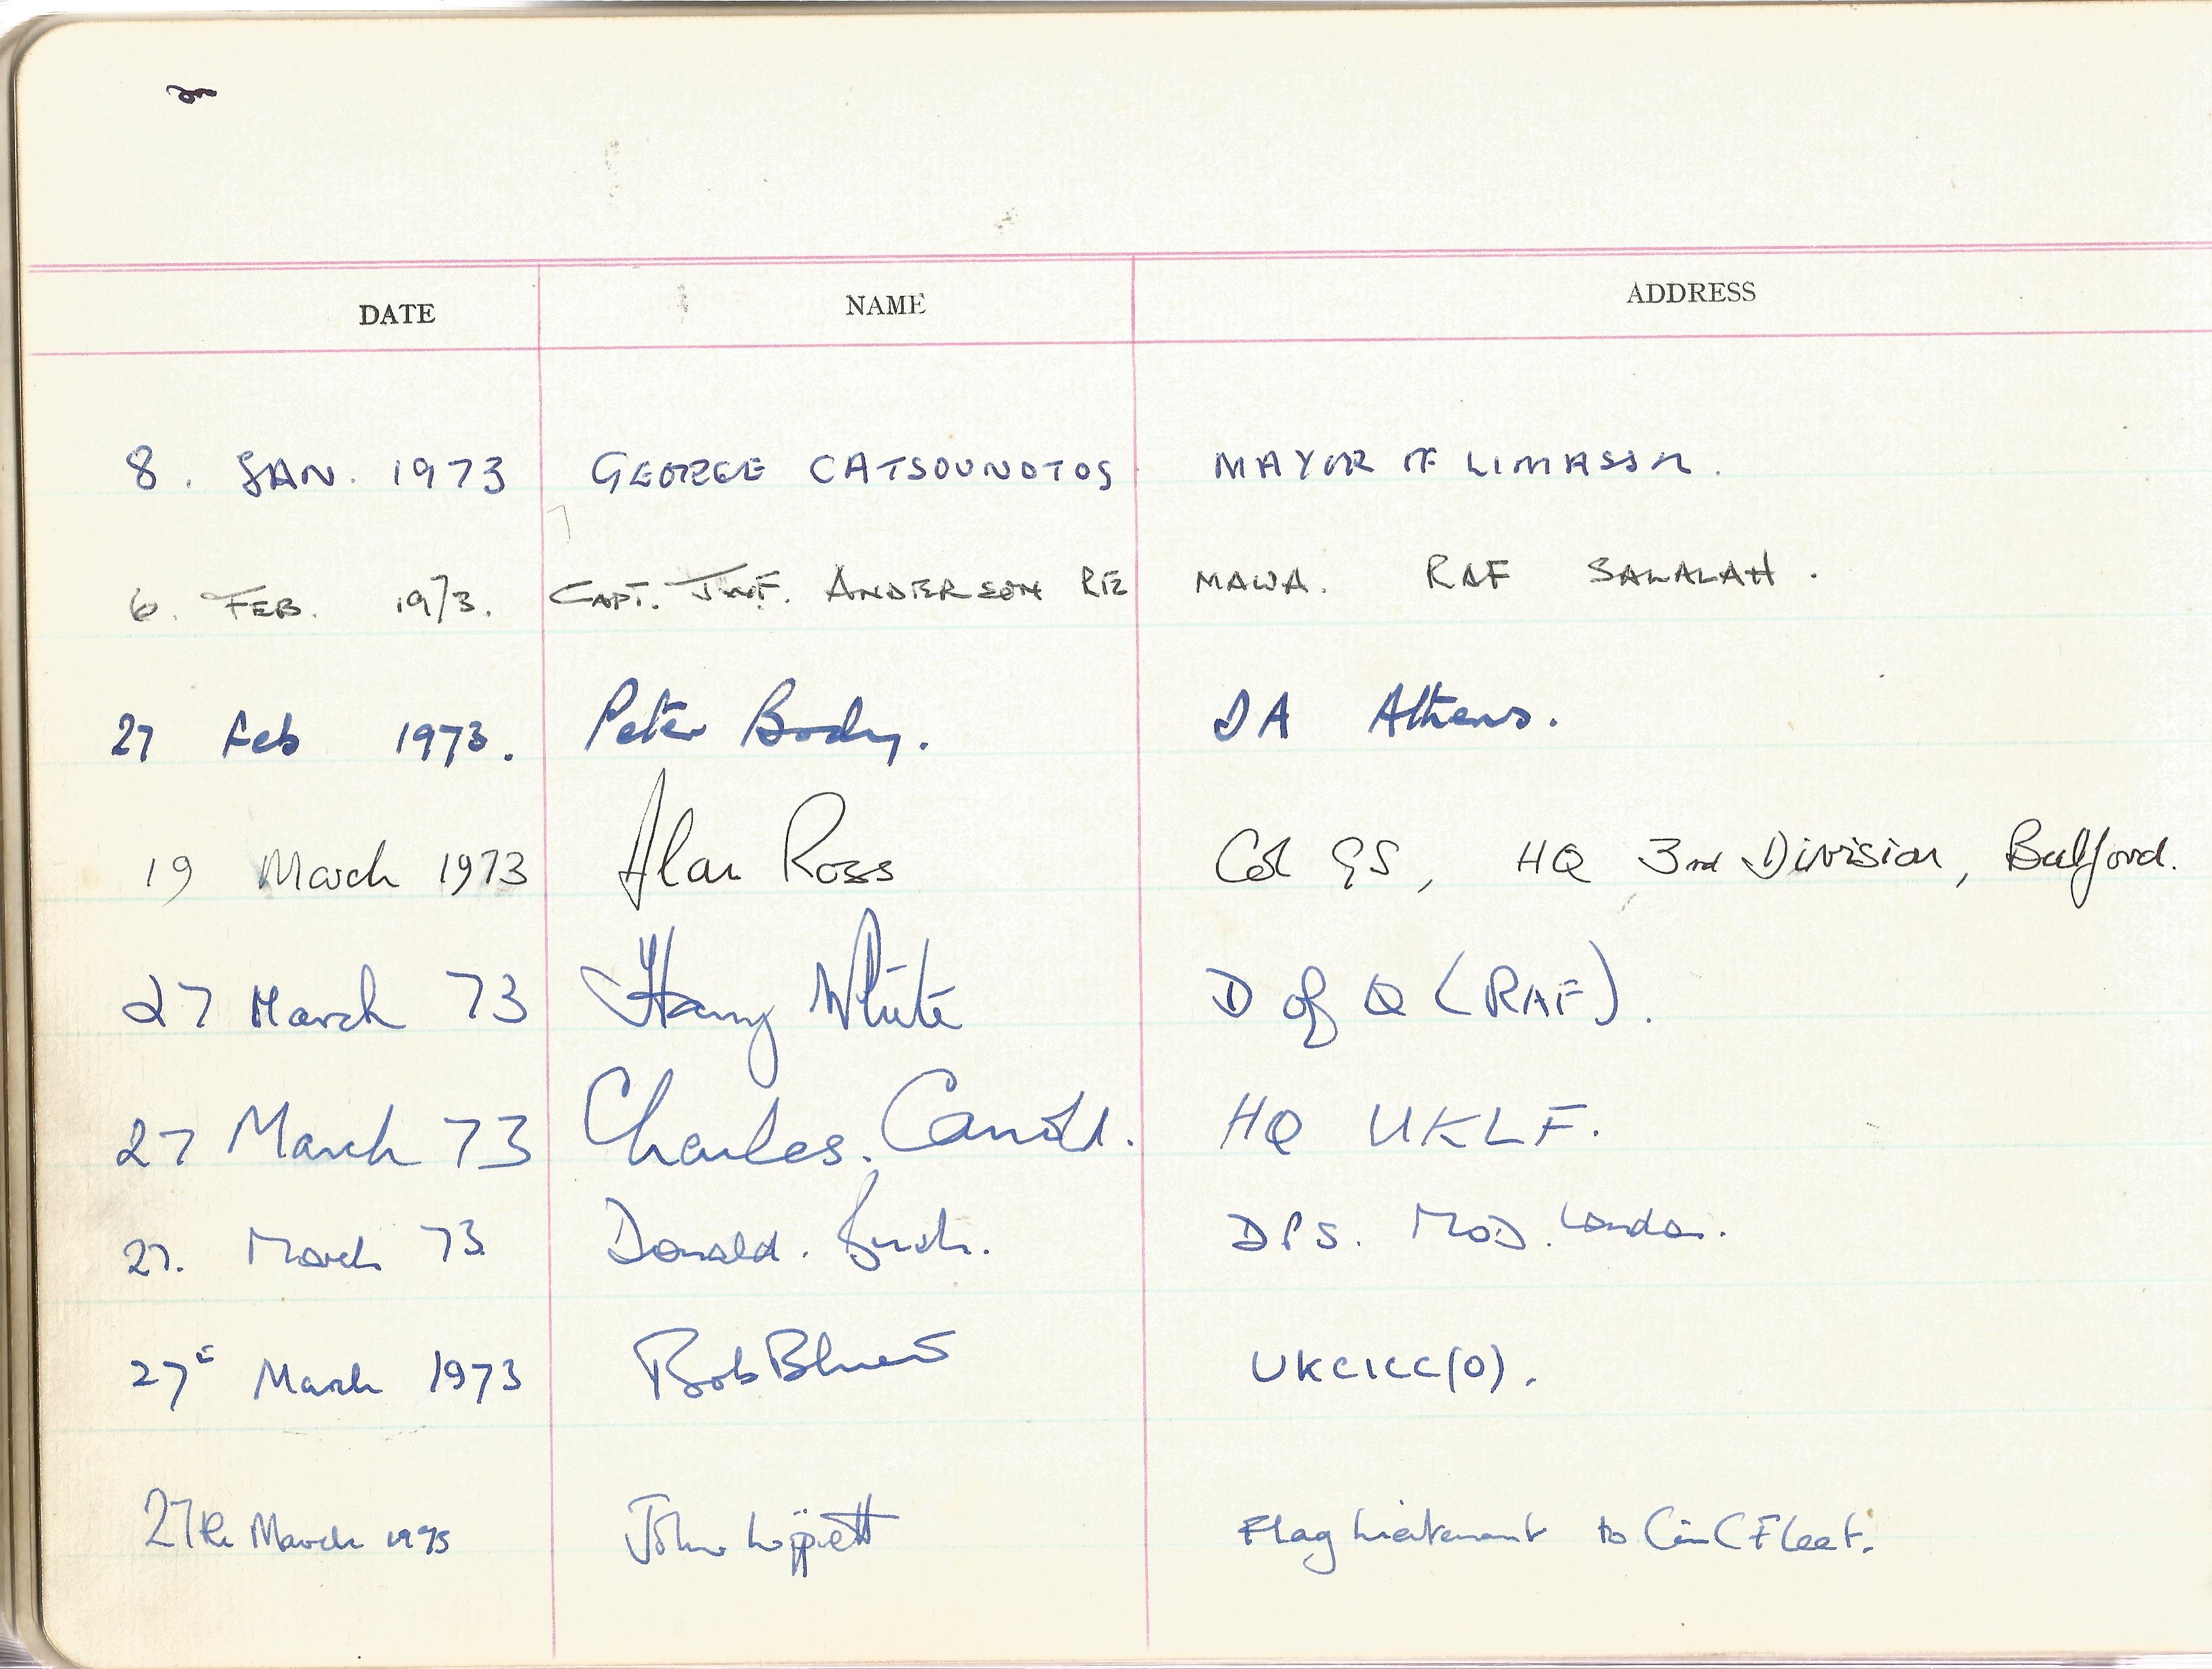 DATE NAME ADDRESS
8. JAN. 1973 GEORGE CATSOUNOTOS MAYOR OF LIMASSOL.
6. FEB. 1973. CAPT. J.W.F. ANDERSON RE MAWA. RAF SALALAH.
27 Feb 1973. Peter Body. DA Athens.
19 March 1973 Alan Ross Col GS, HQ 3rd Division, Bulford.
27 March 73 Harry White D of Q (RAF).
27 March 73 Charles. Carroll. HQ UKLF.
27. March 73 Donald. DPS. MOD. London.
27th March 1973 Bob UKCICC(O).
27th March 1973 John Lippiett Flag Lieutenant to CinC Fleet.